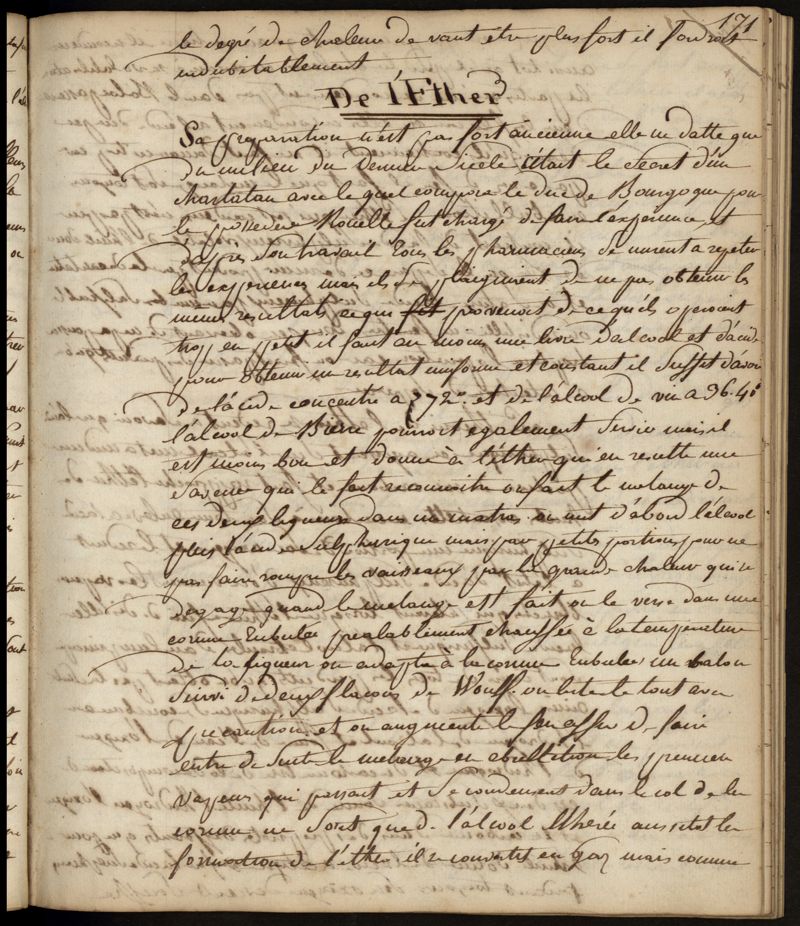 171
le degré de chaleur devant etre plus fort il fondroit
indubitablement
De l'Ether
Sa preparation n'est pas fort ancienne elle ne datte que
du milieu du dernier Siecle c'était le Secret d'un
charlatan avec le quel composa le duc de Bourgogne pour
le posseder Rouelle fut chargé de faire l'experience, et
d'après son travail tous les pharmaciens se mirent a repeter
les experiences mais ils se plaignirent de ne pas obtenir les
memes resultats ce qui provenoit de ce qu'ils operoient
trop en petit il faut au moins une livre d'alcool et d'acide
pour obtenir un resultat uniforme et constant il Suffit d'avoir
de l'acide concentré a 72 et de l'alcool de vin a 36. 40
l'alcool de Bierre pourroit egalement Servir mais il
est moins bon et donne a l'éther qui en resulte une
Saveur qui le fait reconnoitre on fait le melange de
ces deux liqueurs dans un matra on met d'abord l'alcool
puis l'acide Sulphurique mais par petites portions pour ne
pas faire rompre les vaisseaux par la grande chaleur qui se
degage quand le melange est fait on le verse dans une
cornue tubulée prealablement chauffée à la temperature
de la liqueur on adapte à la cornue tubulée un balon
Suivi de deux flacons de Woulf. on lute le tout avec
precaution et on augmente le feu affin de faire
entre de Suite le melange en ebullition les premiers
vapeurs qui passent et Se condensent dans le col de la
cornue ne Sont que de l'alcool Etherée aussitot la
formation de l'ether il se convertit en gaz mais comme